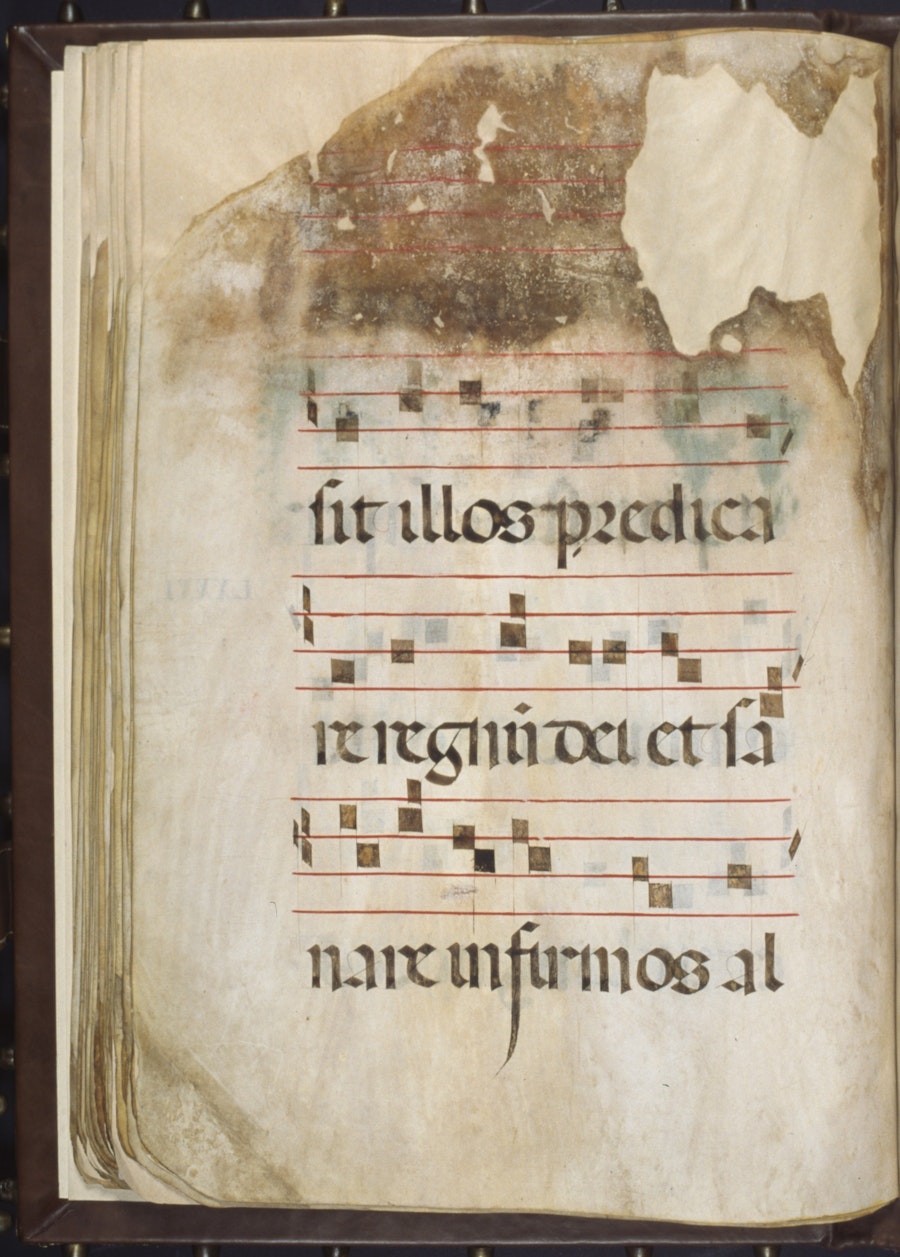 sit illos predica
re regnū dei et sa
nare infirmos al